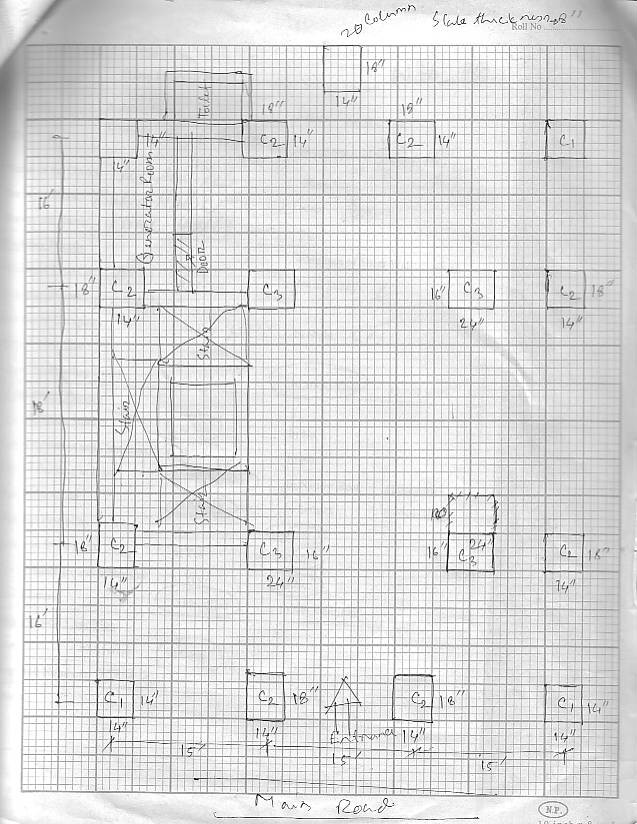 Column
Slab thickness 8"
Roll No
18"
14"
Toilet
18"
C2
14"
18"
C2
14"
C1
14"
14"
Generator Room
16'
Door
18"
C2
14"
C3
16"
C3
24"
C2
18"
14"
Stair
18'
Stair
Stair
18"
C2
14"
C3
16"
24"
16"
C3
24"
C2
18"
14"
16'
C1
14"
14"
C2
18"
14"
Entrance
C2
18"
14"
C1
14"
14"
15'
15'
15'
Main Road
N.P.